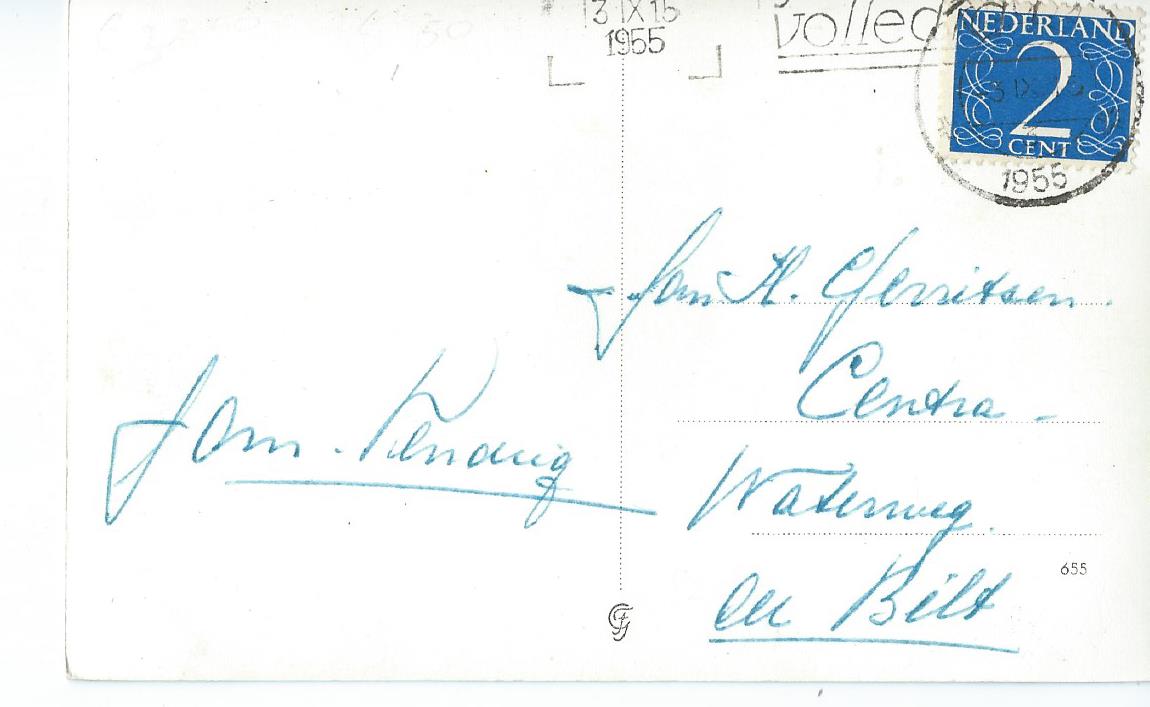 3 IX 15
1955
volled
NEDERLAND
2
CENT
3 IX 15
1955
Jan H. Gerritsen.
Centra-
Waterweg.
de Bilt
Fam.
655